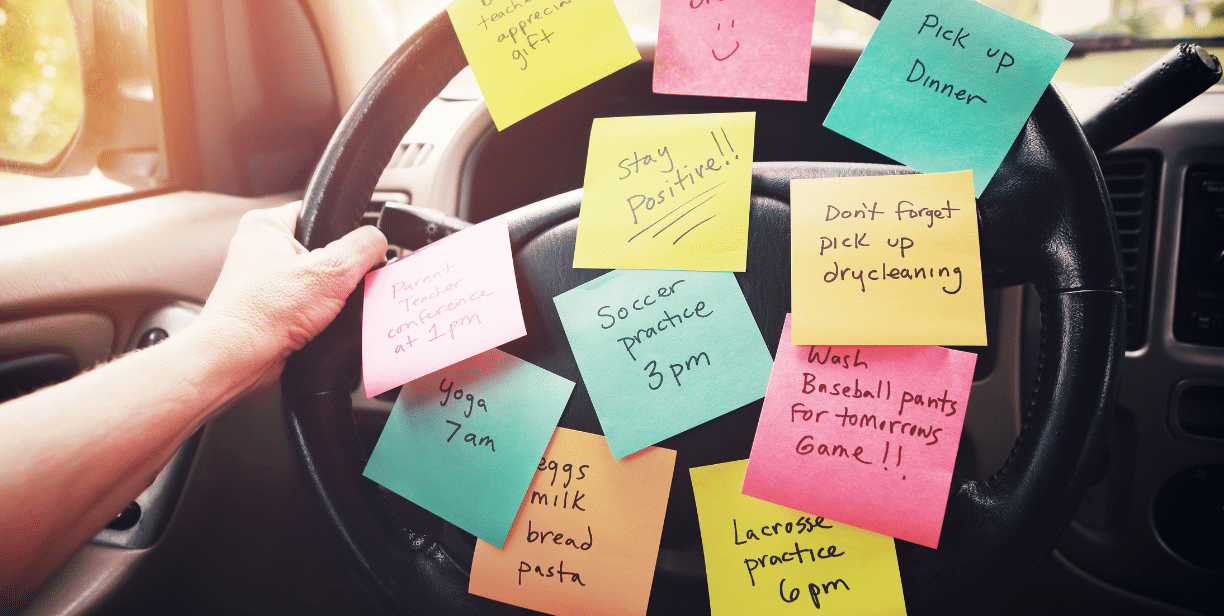 teacher
apprecia
gift
Pick up
Dinner
Stay
Positive!!
Don't forget
pick up
drycleaning
Parent
Teacher
conference
at 1pm
Soccer
practice
3pm
Wash
Baseball pants
for tomorrows
Game!!
Yoga
7am
eggs
milk
bread
pasta
Lacrosse
practice
6pm